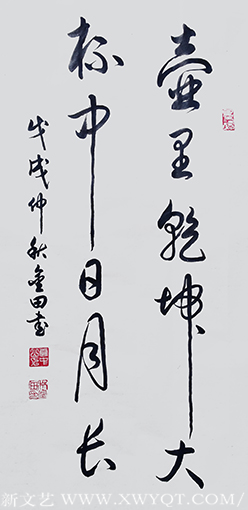 壶里乾坤大
杯中日月长
戊戌仲秋金田书
新文艺 WWW.XWYQT.COM/